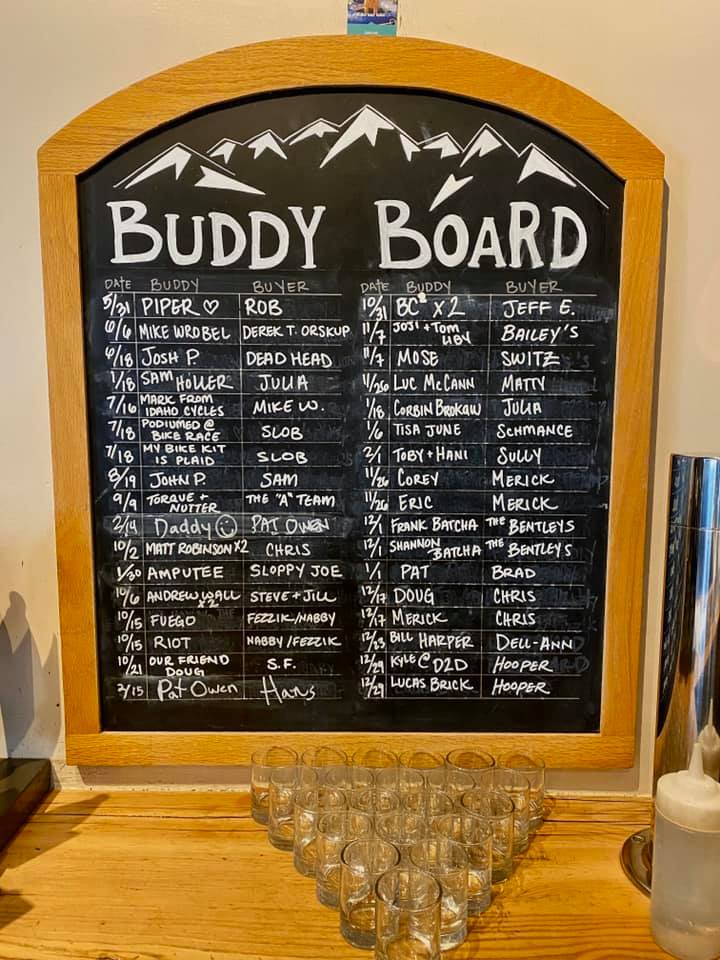 BUDDY BOARD
DATE BUDDY BUYER
5/31 PIPER ♡ ROB
6/6 MIKE WROBEL DEREK T. ORSKUP
6/18 JOSH P. DEAD HEAD
1/18 SAM HOLLER JULIA
7/16 MARK FROM IDAHO CYCLES MIKE W.
7/18 PODIUMED @ BIKE RACE SLOB
7/18 MY BIKE KIT IS PLAID SLOB
8/19 JOHN P. SAM
9/9 TORQUE + NUTTER THE "A" TEAM
2/14 Daddy ☺ PAT OWEN
10/2 MATT ROBINSON X2 CHRIS
1/30 AMPUTEE SLOPPY JOE
10/6 ANDREW WALL X2 STEVE + JILL
10/15 FUEGO FEZZIK/NABBY
10/15 RIOT NABBY/FEZZIK
10/21 OUR FRIEND DOUG S.F.
2/15 Pat Owen Hans
DATE BUDDY BUYER
10/31 BC² X2 JEFF E.
11/7 JOJI + TOM UBY BAILEY'S
11/7 MOSE SWITZ
11/26 LUC McCANN MATTY
1/18 CORBIN BROKAW JULIA
1/6 TISA JUNE SCHMANCE
2/1 TOBY + HANI SULLY
11/26 COREY MERICK
11/26 ERIC MERICK
12/1 FRANK BATCHA THE BENTLEYS
12/1 SHANNON BATCHA THE BENTLEYS
1/1 PAT BRAD
12/17 DOUG CHRIS
12/17 MERICK CHRIS
12/23 BILL HARPER DELL-ANN
12/29 KYLE @ D2D HOOPER
12/29 LUCAS BRICK HOOPER